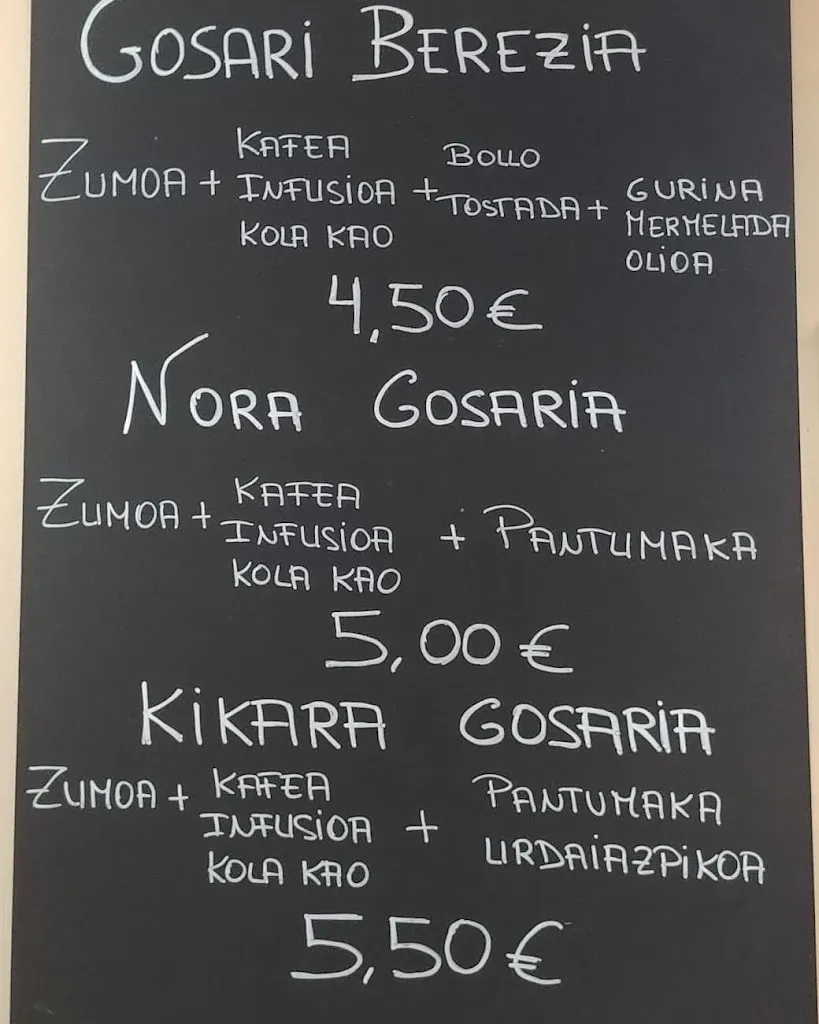 GOSARI BEREZIA
ZUMOA + KAFEA INFUSIOA KOLA KAO + BOLLO TOSTADA + GURINA MERMELADA OLIOA
4,50 €
NORA GOSARIA
ZUMOA + KAFEA INFUSIOA KOLA KAO + PANTUMAKA
5,00 €
KIKARA GOSARIA
ZUMOA + KAFEA INFUSIOA KOLA KAO + PANTUMAKA URDAIAZPIKOA
5,50 €